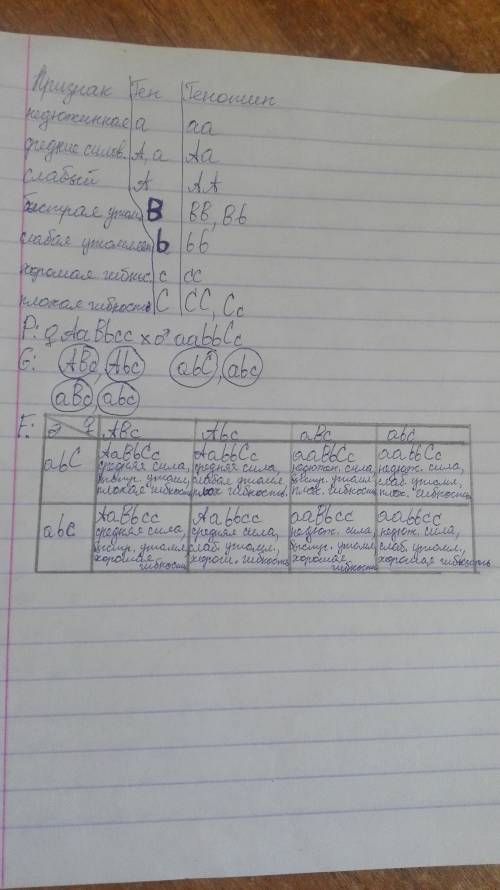 Признак Ген Генотип
недюжинная а аа
средние силов. А, а Аа
слабый А АА
быстрая утомл. B BB, Bb
слабая утомляем b bb
хорошая гибкос. c cc
плохая гибкость C CC, Cc
P: ♀ AaBbcc x ♂ aabbCc
G: ABc, Abc abC, abc
aBc, abc
F: ♂ ♀ ABc Abc aBc abc
abC AaBbCc AabbCc aaBbCc aabbCc
средняя сила, средняя сила, недюжин. сила, недюж. сила,
быстр. утомл., слабая утомл. быстр. утомл. слаб. утомл.,
плохая гибкость плох гибкость. плох. гибкость плох. гибкость
abc AaBbcc Aabbcc aaBbcc aabbcc
средняя сила, средняя сила, недюж. сила, недюж. сила,
быстр. утомл. слаб. утомл., быстр. утомл. слаб. утомл.,
хорошая хорош. гибкость хорошая хорошая гибкость
гибкость гибкость